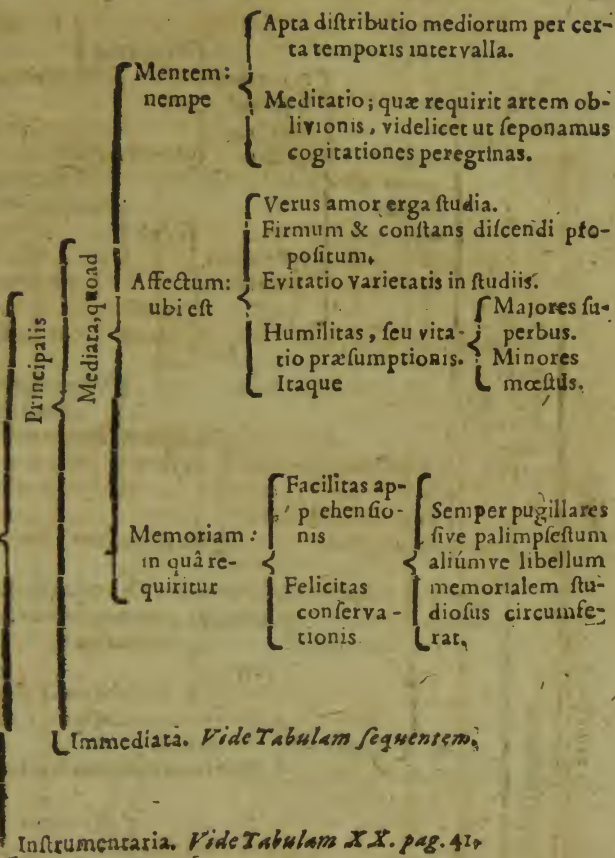 Principalis
Mediata, quoad
Mentem:
nempe
Apta diſtributio mediorum per cer-
ta temporis intervalla.
Meditatio; quæ requirit artem ob-
livionis, videlicet ut ſeponamus
cogitationes peregrinas.
Affectum:
ubi eſt
Verus amor erga ſtudia.
Firmum & conſtans diſcendi pro-
poſitum.
Evitatio varietatis in ſtudiis.
Humilitas, ſeu vita-
tio præſumptionis.
Itaque
Majores ſu-
perbus.
Minores
mœſtus.
Memoriam:
in quâ re-
quiritur
Facilitas ap-
p ehenſio-
nis
Felicitas
conſerva-
tionis
Semper pugillares
ſive palimpſeſtum
aliúmve libellum
memorialem ſtu-
dioſus circumfe-
rat.
Immediata. Vide Tabulam ſequentem.
Inſtrumentaria. Vide Tabulam XX. pag. 41.